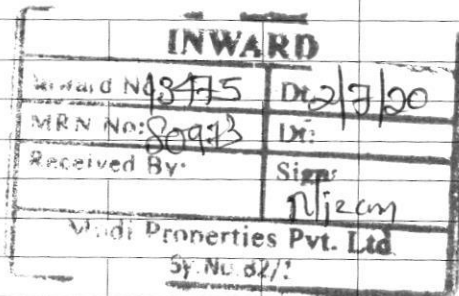 INWARD
Inward No: 13475 Dt: 2/7/20
MRN No: 80973 Dt:
Received By: Sign:
Nizam
Modi Properties Pvt. Ltd.
Sy. No. 82/1